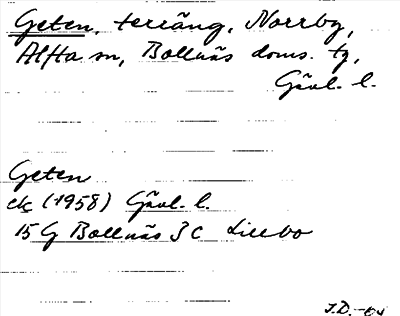 Geten, terräng, Norrby,
Alfta sn, Bollnäs doms. tg,
Gävl. l.
Geten
ek (1958) Gävl. l.
15 G Bollnäs 3 c Lillbo
J.D. -64